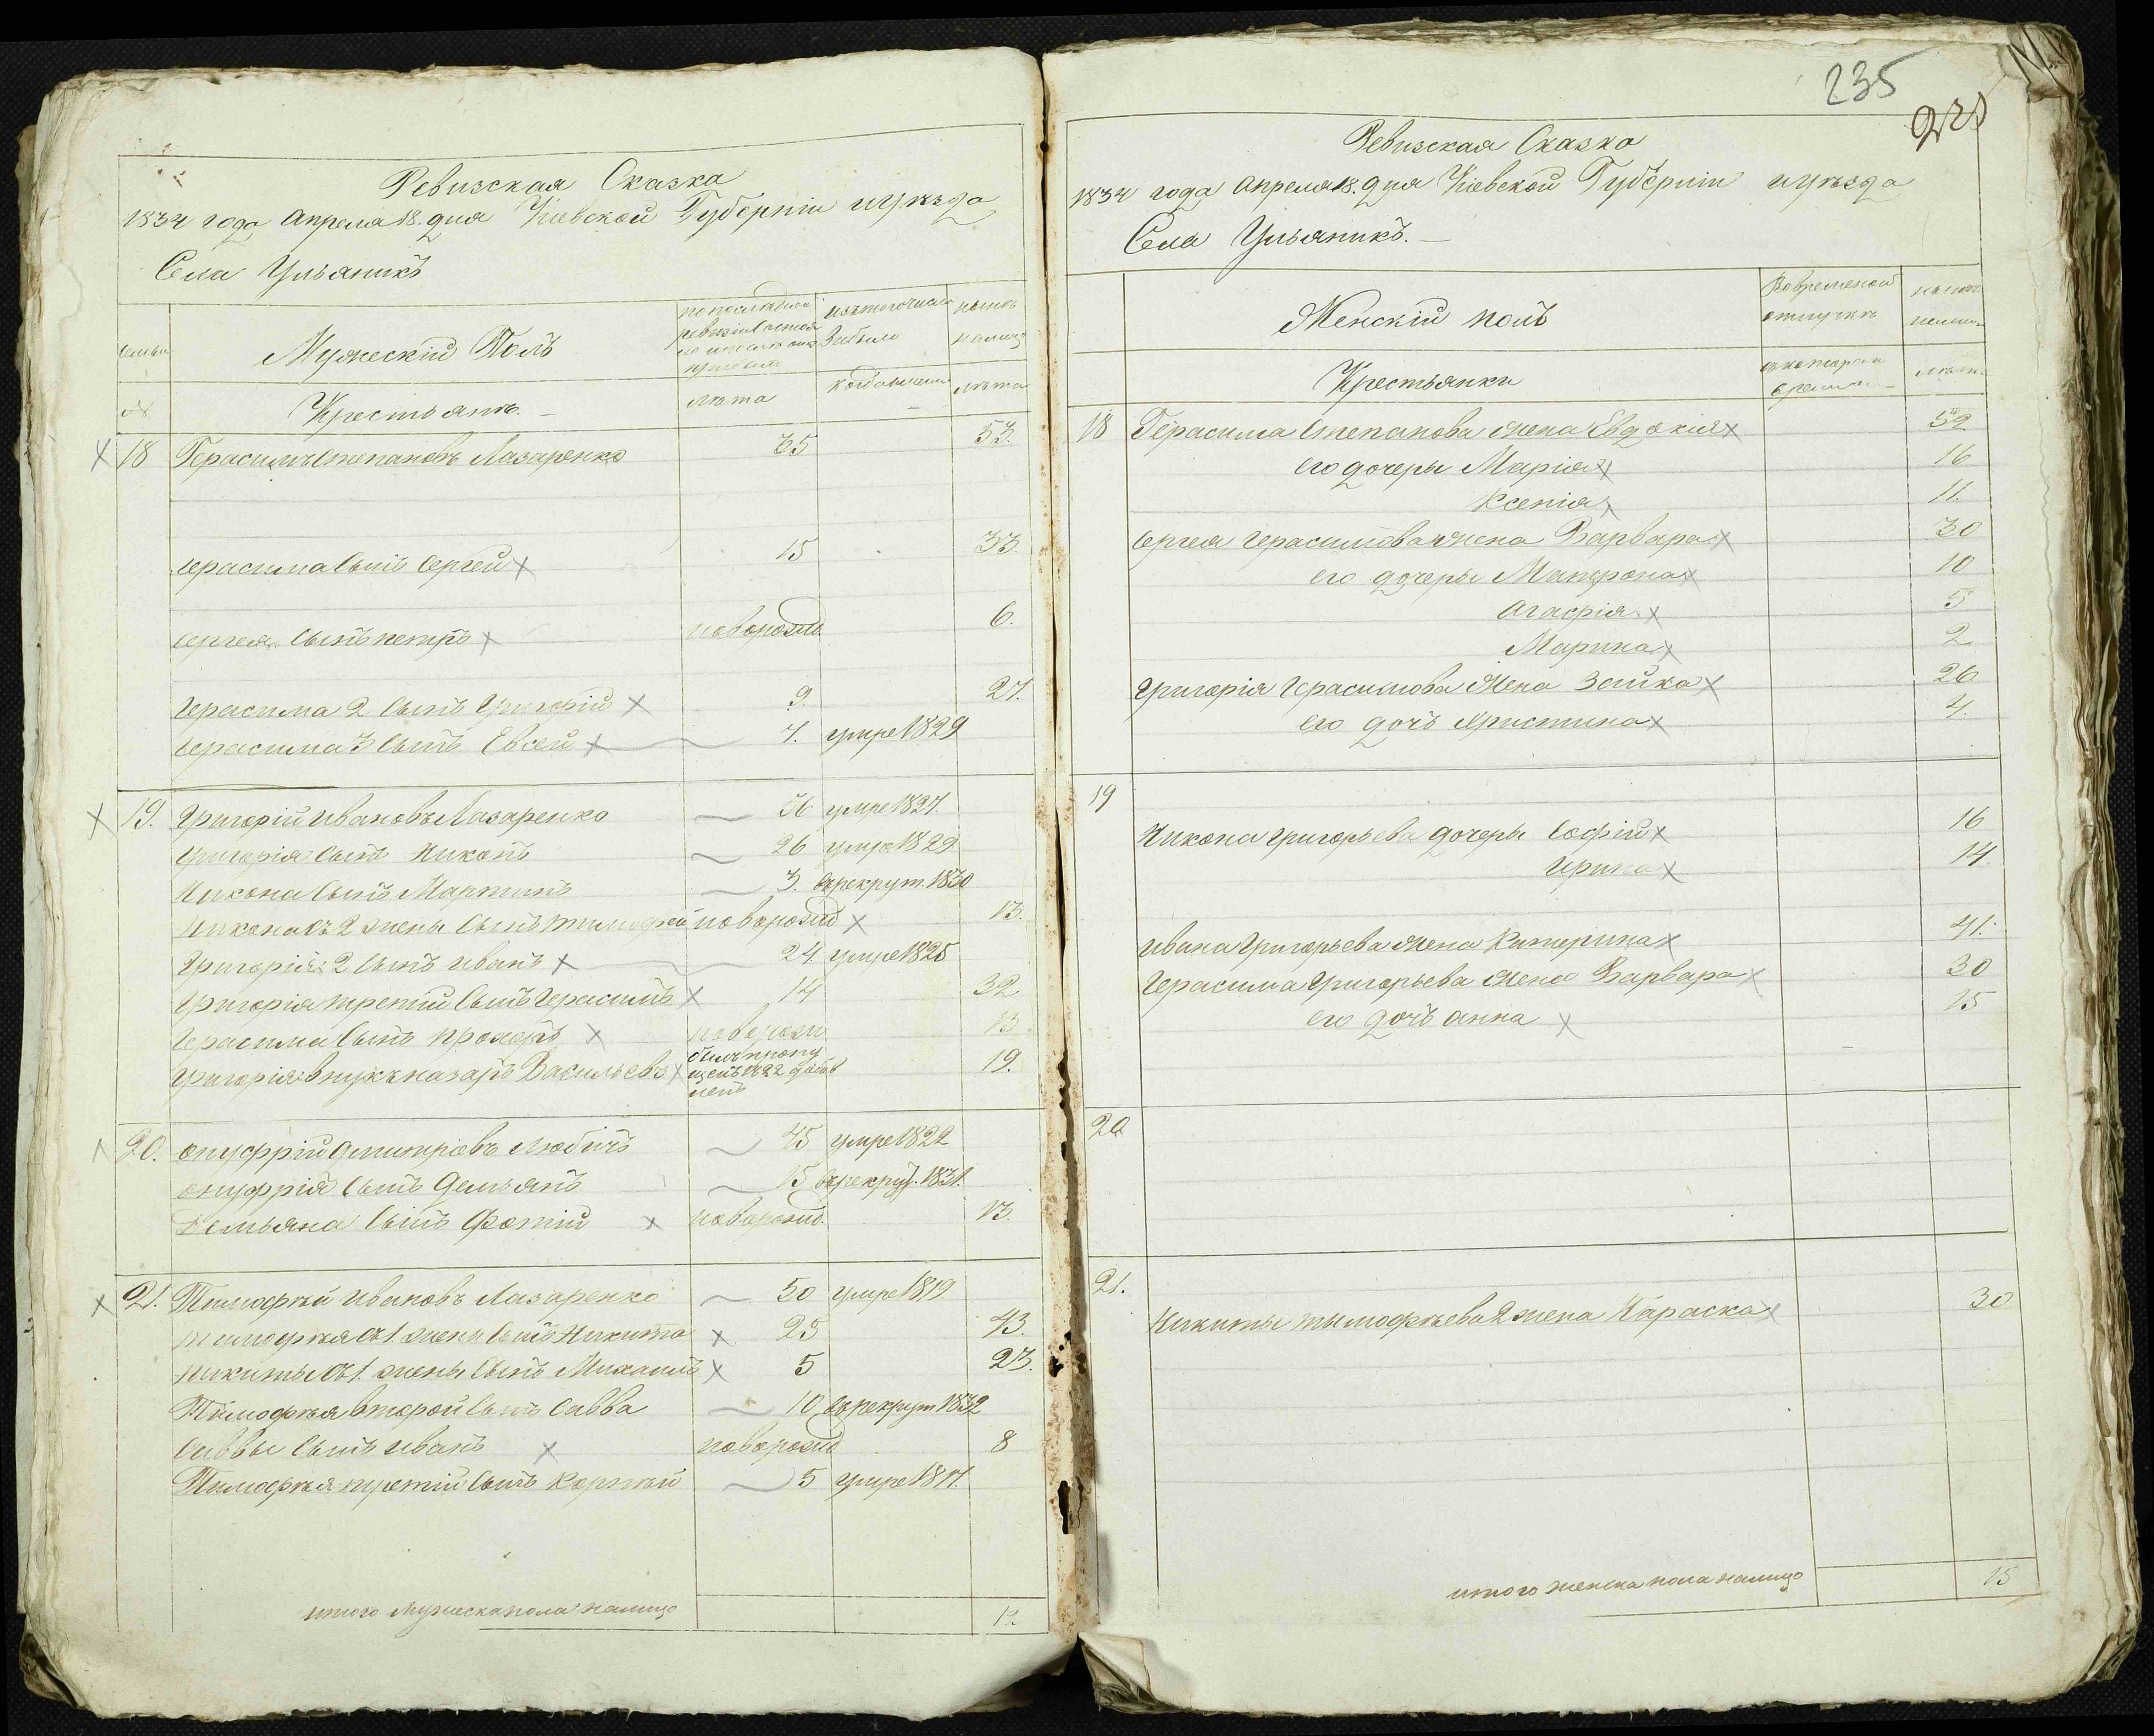 Ревизская Сказка
1834 года апреля 18. дня Киевской Губерніи и уѣзда
Села Ульяникъ
Семьи
Мужескій Полъ
по последней ревизіи состояло и после оной прибыло
изъ того числа выбыло
нынѣ на лицо
№
Крестьянъ.
лѣта
когда именно
лѣта
18 Герасимъ Степановъ Лазаренко 35 53.
Герасима Сынъ Сергей 15 33.
Сергея Сынъ петръ новорожд. 6.
Герасима 2 Сынъ Григорій 9. 27.
Герасима 3 Сынъ Евсей 7. умре 1829
19. Григорій Ивановъ Лазаренко 56 умре 1827.
Григорія Сынъ Никонъ 26 умре 1829
Никона Сынъ Мартинъ 3. въ рекрут. 1830
Никона съ 2 жены Сынъ тимофей новорожд 13.
Григорія 2 Сынъ иванъ 24. умре 1825
Григорія третій Сынъ Герасимъ 14 32
Герасима Сынъ прохоръ новорожд 13
Григорія внукъ назаръ Васильевъ былъ пропущенъ 1822 добавленъ 19.
20. онуфрій дмитріовъ Любичъ 45 умре 1822
онуфрія Сынъ демьянъ 15 въ рекрут. 1831.
Демьяна Сынъ Фотій новорожд. 13.
21. Тимофѣй Ивановъ Лазаренко 50 умре 1819
тимофѣя съ 1. жены Сынъ Никита 25 43.
никиты съ 1. жены Сынъ Михаилъ 5 23.
Тимофѣя второй Сынъ Савва 10 въ рекрут 1832
Саввы Сынъ иванъ новорожд 8
Тимофѣя третій Сынъ Корнѣй 5 умре 1817.
итого мужеска пола на лицо 12
235
Ревизская Сказка
1834 года апреля 18. дня Кіевской Губерніи и уѣзда
Села Ульяникъ.
Женскій полъ
Во временной отлучкѣ
нынѣ на лицо
Крестьянки
съ котораго времени
лѣта
18 Герасима Степанова жена Евдокія 52
его дочеры Марія 16
Ксенія 11.
Сергея Герасимова жена Варвара 30
его дочеры Матрона 10
Агафія 5
Марина 2
Григорія Герасимова жена Зенька 26
его дочь Христина 4.
19
Никона григорьева дочеры Софій 16
Ирина 14.
ивана Григорьева жена Катерина 41.
Герасима Григорьева жена Варвара 30
его дочь анна 15
20
21.
Никиты тымофѣева 2 жена Параска 30
итого женска пола на лицо 15